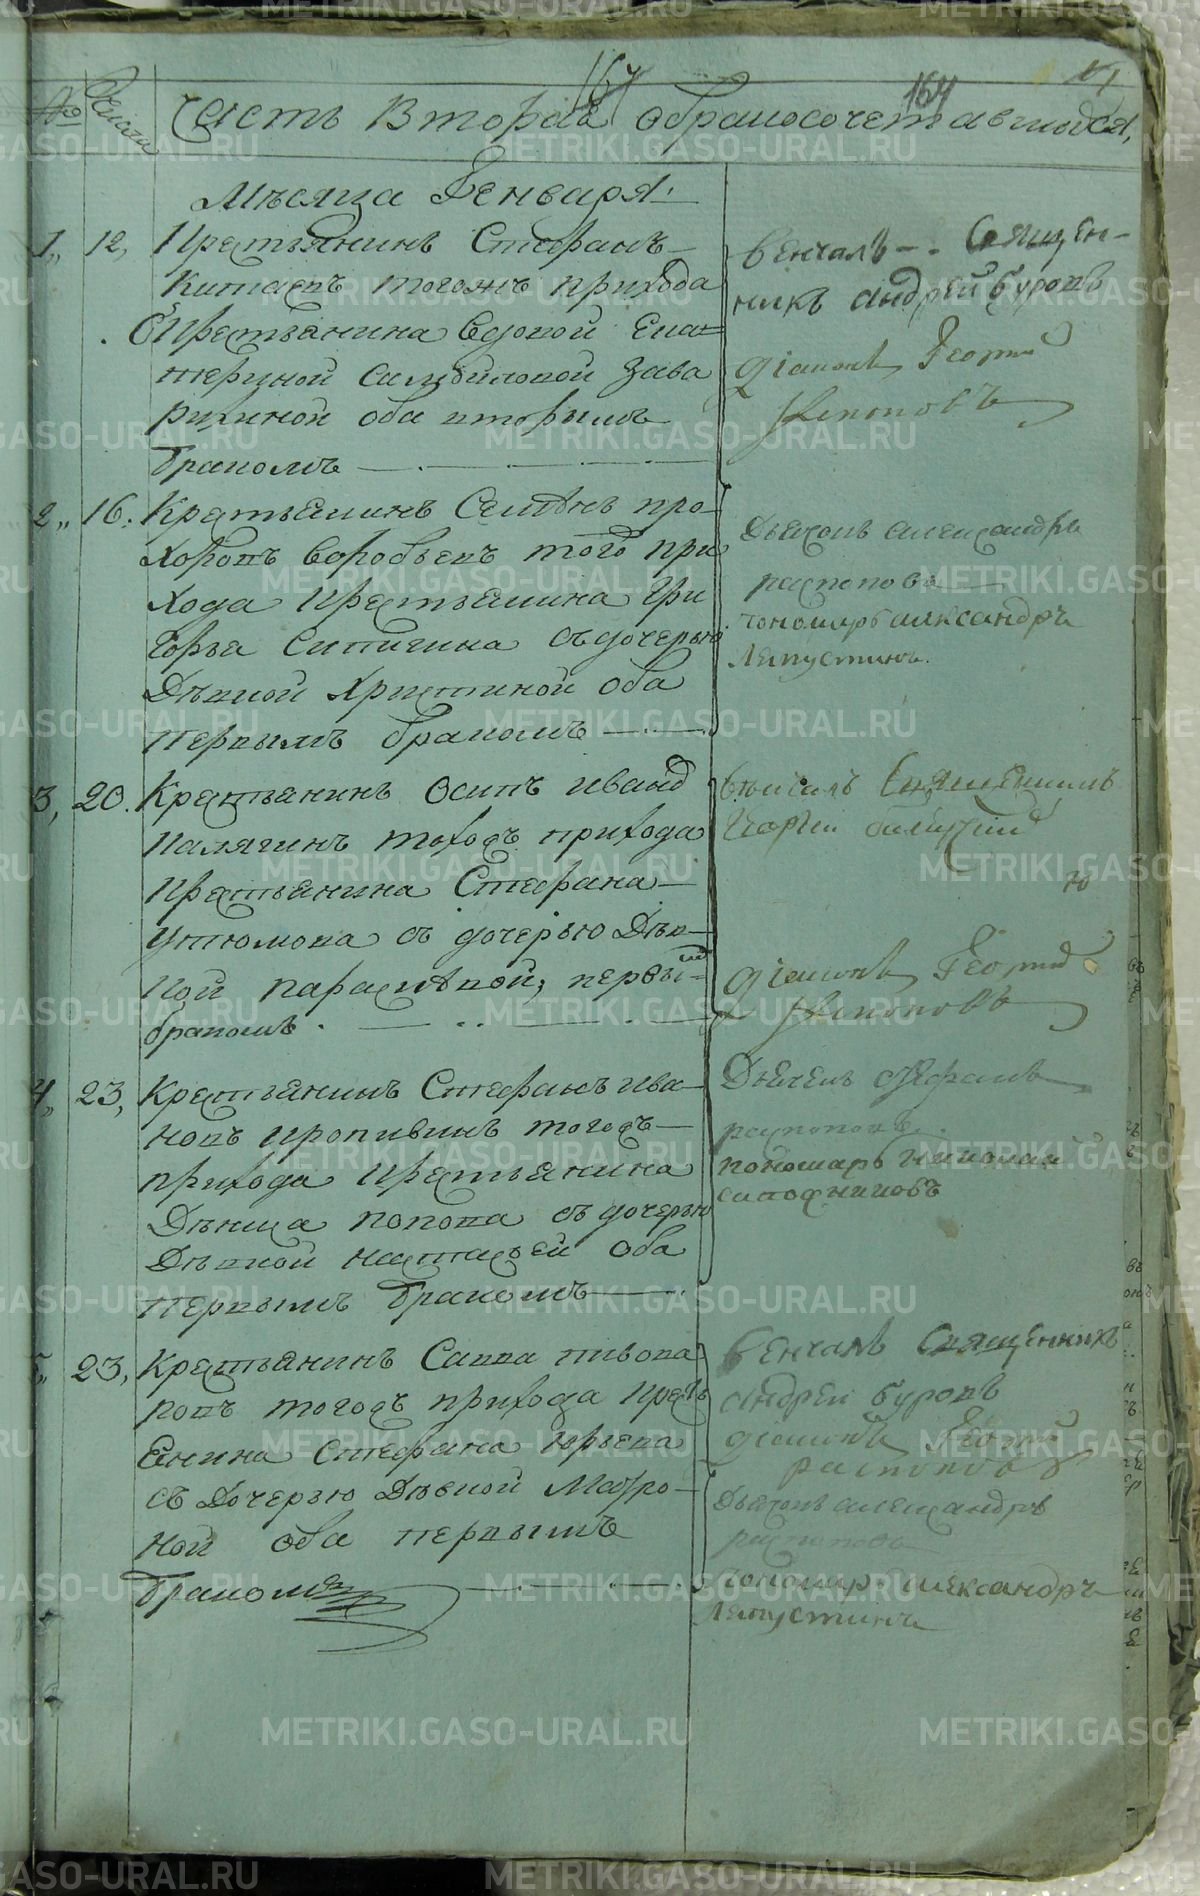 167
164
№
Числа
Часть Вторая обракосочетавшихся,
Месяца Генваря.
1, 12, Крестьянинъ Стефанъ
Китаевъ тогожъ прихода
Крестьянина вдовой Ека=
териной Самойловой Зава
рихиной оба вторымъ
бракомъ
Венчалъ Священ-
никъ Андрей Буровъ
Диаконъ Георгий
Кипоповъ
2, 16. Крестьянинъ Семёнъ про-
хоровъ Воробьевъ того при
хода Крестьянина Гри
горья Сипигина съ дочерью
Девкой Христиной оба
первымъ бракомъ
Дьяконъ александръ
распопов
пономарь александръ
Ляпустинъ.
3, 20. Крестьянинъ Осипъ Иванов
Калягинъ тогожъ прихода
Крестьянина Стефана
Утюмова съ дочерью Дев-
кой парасковой, первым
бракомъ
Венчалъ Священникъ
Георгий
Диаконъ Георгий
Кипоповъ
4, 23, Крестьянинъ Стефанъ ива-
новъ Кропивинъ тогожъ
прихода Крестьянина
Дениса попова съ дочерью
Девкой настасьей оба
первымъ бракомъ
Дьячекъ Стефанъ
распопов.
пономарь Николай
сапожниковъ
5, 23, Крестьянинъ Савва пивова
ровъ тогожъ прихода Кресть
янина Стефана Юрьева
съ Дочерью Девкой Матро-
ной оба первымъ
бракомъ
Венчалъ Священникъ
Андрей Буровъ
Диаконъ Георгий
распоповъ
Дьяконъ александръ
распопов
пономарь александръ
Ляпустинъ
METRIKI.GASO-URAL.RU